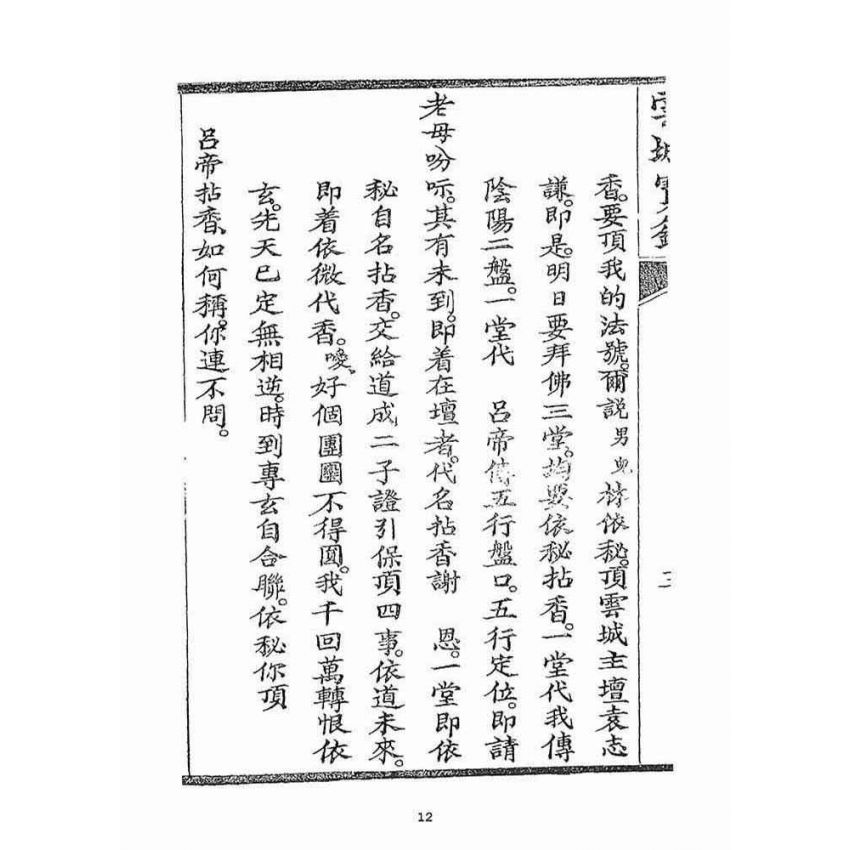 雲城寶籙
香。要頂我的法號。爾説男兒
依秘。頂雲城主壇袁志
謙。即是。明日要拜佛三堂。均要依秘拈香。一堂代我傳
陰陽二盤。一堂代 呂帝傳五行盤口。五行定位。即請
老母吩咐。其有未到。即着在壇者。代名拈香謝 恩。一堂即依
秘自名拈香。交給道成二子證引保頂四事。依道未來。
即着依微代香。噯、好個團圞不得圓。我千回萬轉恨依
玄。先天已定無相逆。時到專玄自合聯。依秘你頂
呂帝拈香、如何稱。你連不問。
12